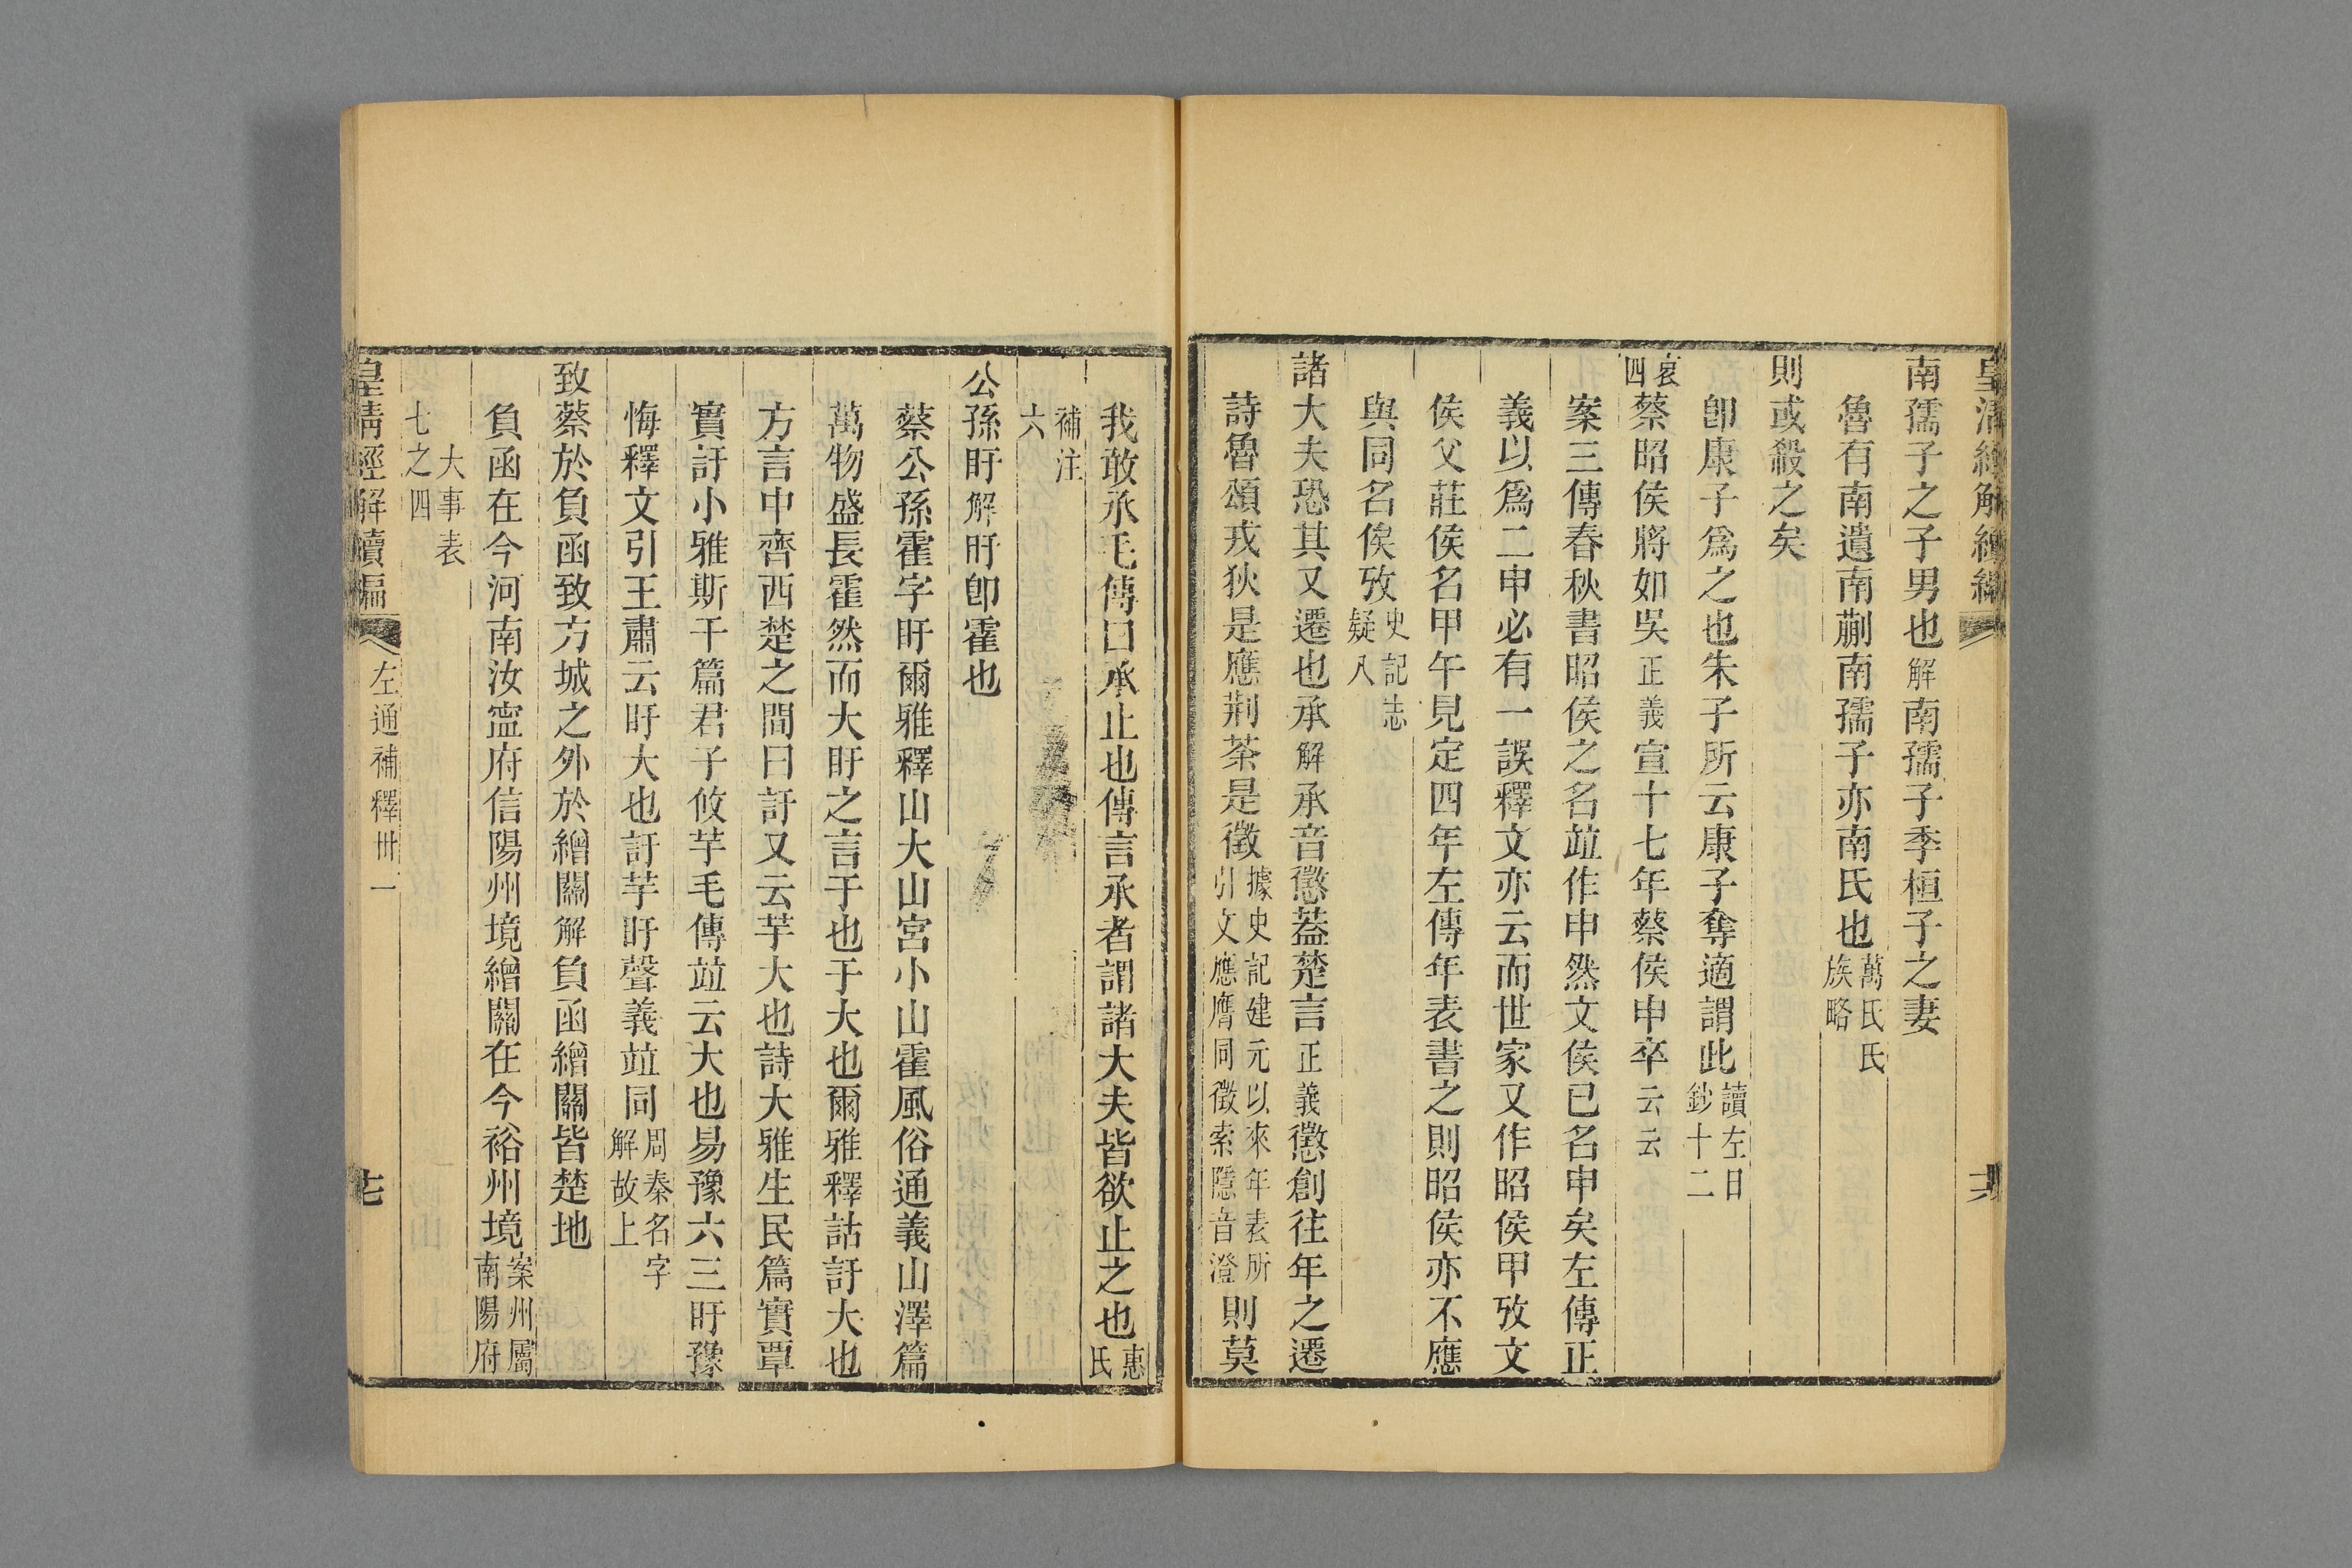 皇清經解續編 六
南孺子之子男也解南孺子季桓子之妻
魯有南遺南蒯南孺子亦南氏也萬氏氏族略
則或殺之矣
卽康子爲之也朱子所云康子奪適謂此讀左日鈔十二
哀四蔡昭侯將如吳正義宣十七年蔡侯申卒云云
案三傳春秋書昭侯之名竝作申然文侯已名申矣左傳正
義以爲二申必有一誤釋文亦云而世家又作昭侯甲攷文
侯父莊侯名甲午見定四年左傳年表書之則昭侯亦不應
與同名俟攷史記志疑八
諸大夫恐其又遷也承解承音懲葢楚言正義懲創往年之遷
詩魯頌戎狄是應荆荼是徵據史記建元以來年表所引文應膺同徵索隱音澄則莫
我敢承毛傳曰承止也傳言承者謂諸大夫皆欲止之也惠氏
補注六
公孫盱解盱卽霍也
蔡公孫霍字盱爾雅釋山大山宮小山霍風俗通義山澤篇
萬物盛長霍然而大盱之言于也于大也爾雅釋詁訏大也
方言中齊西楚之間曰訏又云芋大也詩大雅生民篇實覃
實訏小雅斯干篇君子攸芋毛傳竝云大也易豫六三盱豫
悔釋文引王肅云盱大也訏芋盱聲義竝同周秦名字解故上
致蔡於負函致方城之外於繒關解負函繒關皆楚地
負函在今河南汝寧府信陽州境繒關在今裕州境案州屬南陽府
大事表七之四
皇淸經解續編 左通補釋卅一 七